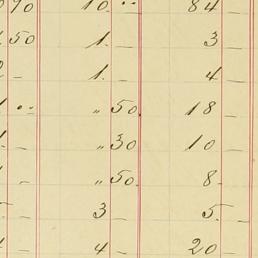 90 10 " 84 _
50 1 _ 3 _
_ 1. _ 4 _
" " 50. 18 _
_ " 30 10 _
_ " 50. 8. _
_ 3 _ 5. _
_ 4 _ 20 _